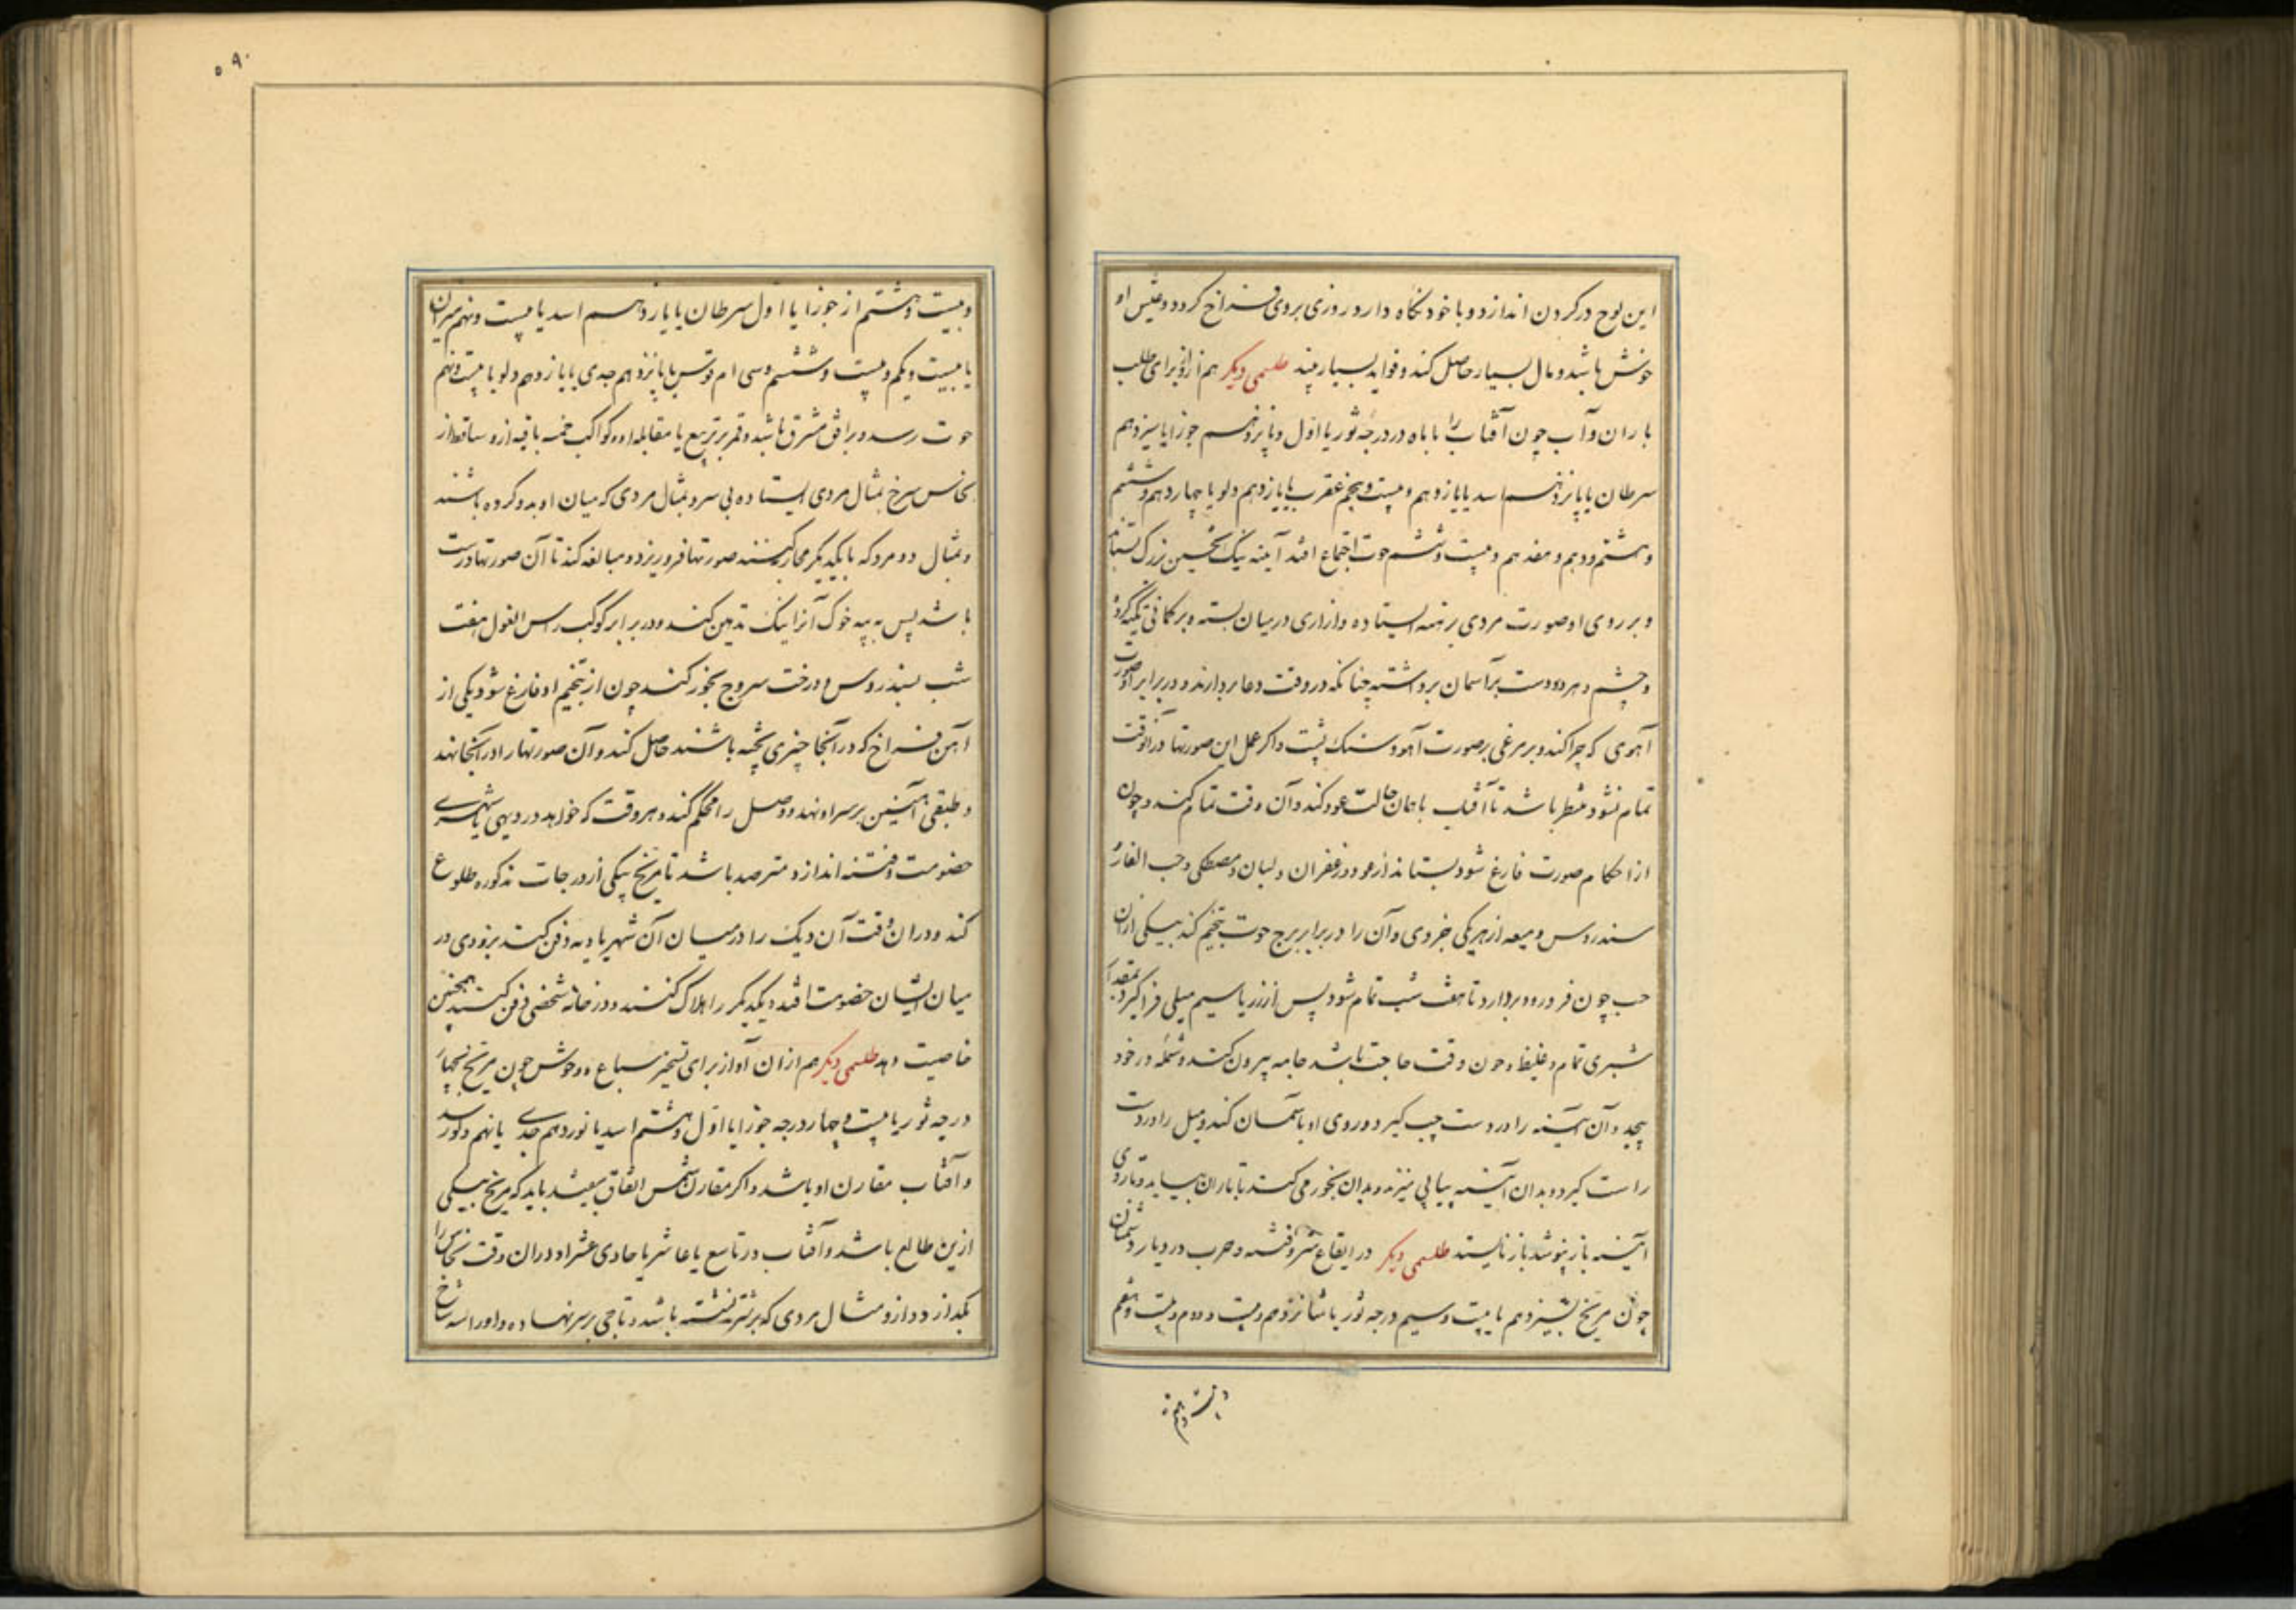 این لوح در کردن اندازد و با خود نگاه دارد روزی بروی فراخ گردد و عیش او
خوش باشد و مال بسیار حاصل کند و فواید بسیار بیند طلسمی دیگر هم ازو برای طلب
باران و آب چون آفتاب را با ماه در درجه ثور یا اول و پانزدهم جوزا یا سیزدهم
سرطان یا پانزدهم اسد یا یازدهم و بیست و پنجم عقرب یا یازدهم دلو یا چهاردهم و ششم
و هشتم و دهم و هفدهم و بیست و ششم حوت اجتماع افتد آینه نیک بزرک بستاند
و بر روی او صورت مردی برهنه ایستاده و ازاری در میان بسته و بر کمانی تکیه کرده
و چشم و هر دو دست بر آسمان برداشته چنانکه در وقت دعا بردارند و در برابر او صورت
آهوی که چرا کند و بر مرغی بصورت آهو و سنک پشت و اکر عمل این صورتها در آنوقت
تمام نشود منتظر باشد تا آفتاب با همان حالت عود کند و آن وقت تمام کند و چون
از احکام صورت فارغ شود بستاند از عود و زعفران و لبان و مصطکی و حب الغار
سندروس و میعه از هر یکی جزوی و آن را در برابر برج حوت تنجیم کند بیکی ازان
حب چون فرو رود بردارد تا هفت شب تمام شود پس از زر یا سیم میلی فرا گیرد بمقدار
شبری تمام و غلیظ و چون وقت حاجت باشد جامه بیرون کند و شمله در خود
پیچد و آن آینه را در دست چپ گیرد و روی او با آسمان کند و میل را در دست
راست گیرد و بدان آینه پیاپی میزند و بدان بخور می کند تا باران بیاید و تا روی
آینه باز نپوشد باز نایستد طلسمی دیگر در ایقاع شر و فتنه و حرب در دیار دشمنان
چون مریخ بسیزدهم یا بیست و سیم درجه ثور یا شانزدهم و بیست و دوم و بیست و هفتم
و بیست و هشتم
۵۹۰
و بیست و هشتم از جوزا یا اول سرطان یا یازدهم اسد یا بیست و نهم میزان
یا بیست و یکم و بیست و ششم و سی ام قوس یا پانزدهم جدی یا یازدهم دلو یا بیست و نهم
حوت رسد و بر افق مشرق باشد و قمر بر تربیع یا مقابله او و کواکب خمسه باقیه ازو ساقط از
نحاس سرخ تمثال مردی ایستاده بی سر و تمثال مردی که میان او بدو کرده باشند
و تمثال دو مرد که با یکدیگر محاربه کنند صورتها فرو ریزد و مبالغه کند تا آن صورتها درست
باشد پس به پیه خوک آنرا نیک تدهین کند و در برابر کوکب راس الغول هفت
شب بسندروس و درخت سروج بخور کند چون از تنجیم او فارغ شود دیکی از
آهن فراخ که در آنجا چیزی پخته باشند حاصل کند و آن صورتها را در آنجا نهد
و طبقی آهنین بر سر او نهد و وصل را محکم کند و هر وقت که خواهد در دیهی یا شهری
خصومت و فتنه اندازد مترصد باشد تا مریخ بیکی از درجات مذکوره طلوع
کند و در ان وقت آن دیک را در میان آن شهر یا دیه دفن کند بزودی در
میان ایشان خصومت افتد و یکدیگر را هلاک کنند و در خانه شخصی دفن کنند همچنین
خاصیت دهد طلسمی دیگر هم ازان آواز برای تسخیر سباع و وحوش چون مریخ بچهار
درجه ثور یا بیست و چهار درجه جوزا یا اول و هشتم اسد یا نوزدهم جدی یا نهم دلو رسد
و آفتاب مقارن او باشد و اکر مقارن شمس اتفاق نیفتد باید که مریخ بیکی
ازین طالع باشد و آفتاب در تاسع یا عاشر یا حادی عشر او در ان وقت نحاس را
بگدازد و ازو مثال مردی که بر شتر نشسته باشد و تاجی بر سر نهاده و او را سه شاخ